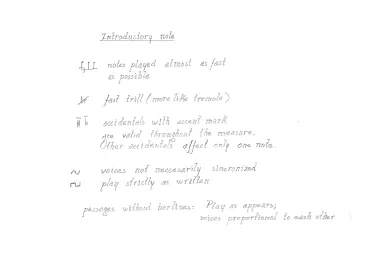 Introductory note
notes played almost as fast
as possible
fast trill (more like tremolo)
accidentals with accent mark
are valid throughout the measure.
Other accidentals affect only one note.
voices not neccesarily sincronized
play strictly as written
passages without barlines: Play as appears;
voices proportional to each other